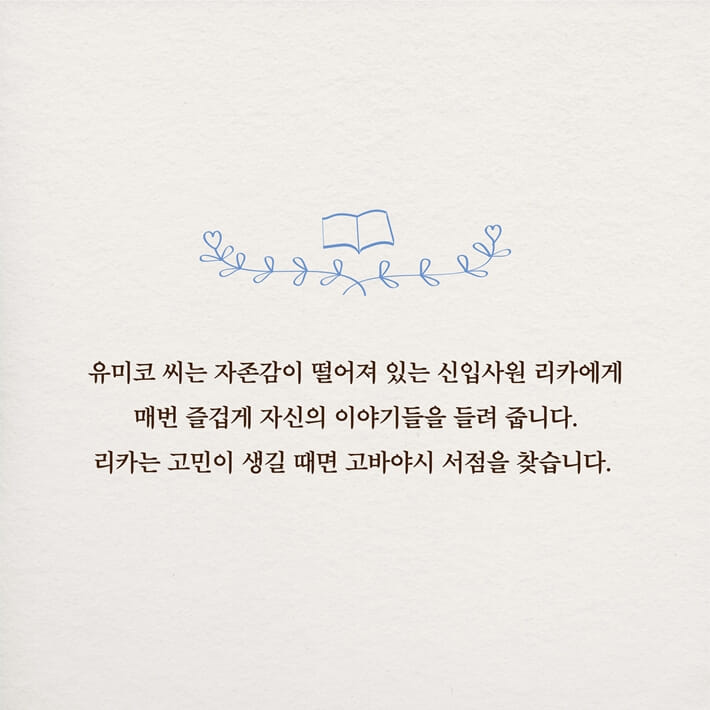 유미코 씨는 자존감이 떨어져 있는 신입사원 리카에게
매번 즐겁게 자신의 이야기들을 들려 줍니다.
리카는 고민이 생길 때면 고바야시 서점을 찾습니다.